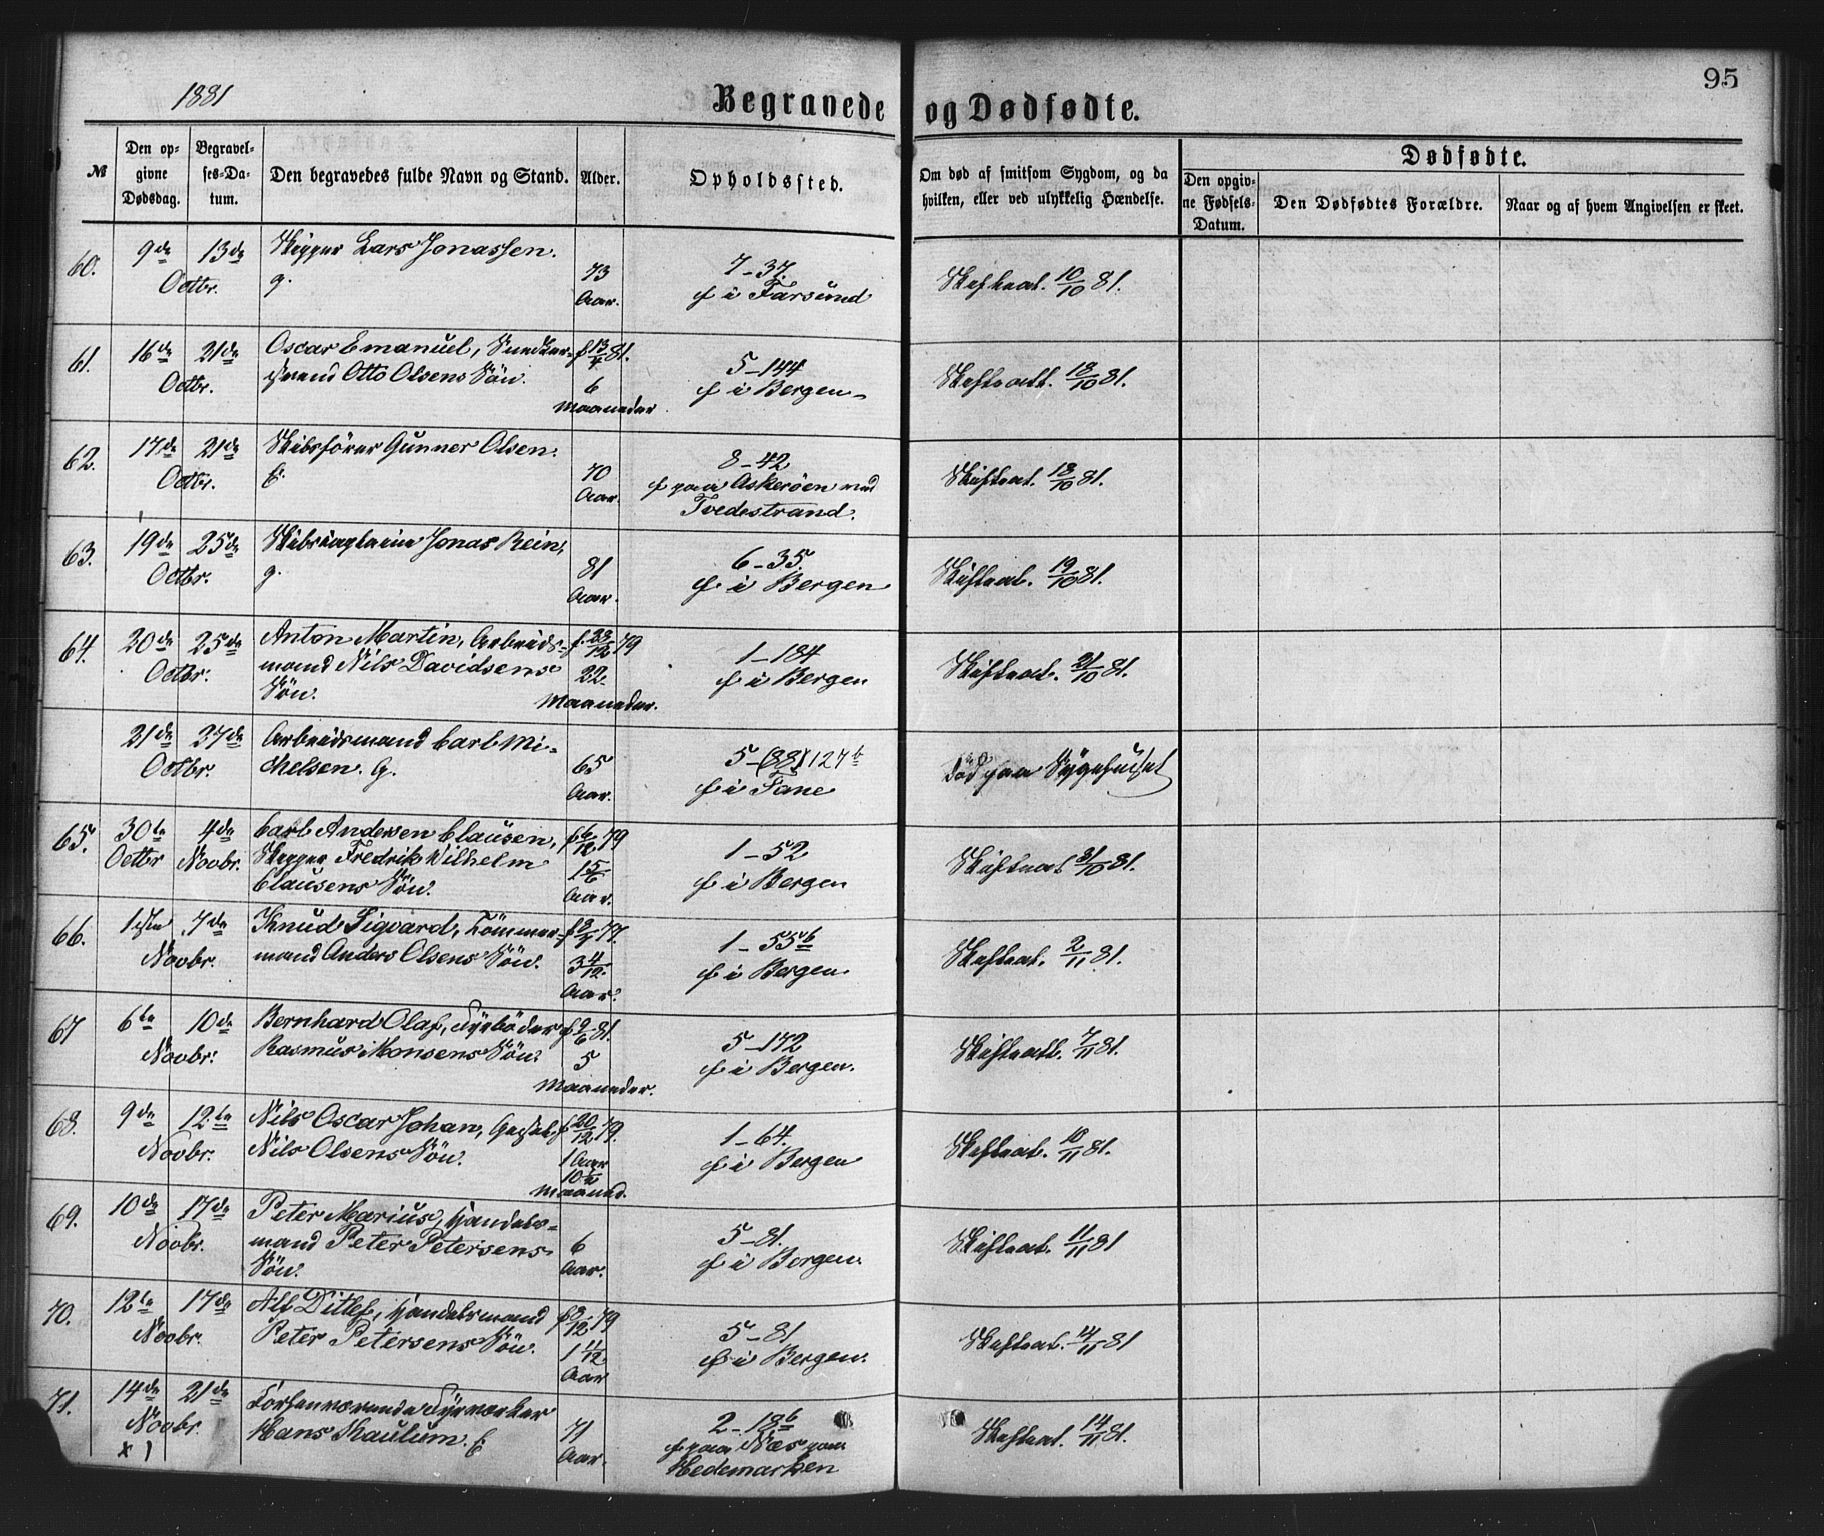 1881
Begravede og Dødfødte.
95
№
Den opgivne Dødsdag.
Begravelses-Datum.
Den begravedes fulde Navn og Stand.
Alder.
Opholdssted.
Om død af smitsom Sygdom, og da hvilken, eller ved ulykkelig Hændelse.
Dødfødte.
Den opgivne Fødsels-Datum.
Den Dødfødtes Forældre.
Naar og af hvem Angivelsen er skeet.
60. 9de 13de Skipper Lars Jonassen.
Octbr. g. 73 Aar. 7–37. f i Farsund Skifteat. 10/10 81.
61. 16de 21de Oscar Emanuel, Snedker- f 13/4 81.
Octbr. svend Otto Olsens Søn. 6 Maaneder 5–144 f i Bergen Skifteatt. 18/10 81.
62. 17de 21de Skibsfører Gunner Olsen.
Octbr. E. 70 Aar. 8–42 f paa Askerøen ved Tvedestrand. Skifteat. 18/10 81.
63. 19de 25de Skibscaptein Jonas Rein,
Octbr. g. 81 Aar. 6–35. f i Bergen Skifteat. 19/10 81.
64. 20de 25de Anton Martin, Arbeids- f. 23/12 79
Octbr. mand Nils Davidsens Søn. 22 Maaneder. 1–184 f i Bergen Skifteat. 21/10 81.
21de 27de Arbeidsmand Carl Mi-
Octbr. chelsen. G. 65 Aar. 5–(88) 127b f i Fane død paa Sygehuset
65. 30te 4de Carl Andersen Clausen, f 6/12 79
Octbr Novbr. Skipper Fredrik Wilhelm
Clausens Søn. 1 5/6 Aar. 1–52 f i Bergen Skifteat 31/10 81.
66. 1ste 7de Knud Sigvard, Tømmer-
Novbr. mand Anders Olsens Søn. 3 4/12 Aar. 1–55b f i Bergen. Skifteat. 2/11 81.
67 6te 10de Bernhard Olaf, Fyrbøder f 2/6 81.
Novbr. Rasmus Monsens Søn. 5 Maaneder. 5–172 f i Bergen. Skifteatt. 7/11 81.
68. 9de 12te Nils Oscar Johan, f 20/12 79.
Novbr. Nils Olsens Søn. 1 Aar 10½ Maaned. 1–64. f i Bergen Skifteat. 10/11 81.
69. 10de 17de Peter Marius, Handels-
Novbr. mand Peter Petersens
Søn. 6 Aar. 5–81. f i Bergen. Skifteat. 11/11 81
70. 12te 17de Alf Ditlef, Handelsmand f 3/12 79
Novbr. Peter Petersens Søn. 1 11/12 Aar 5–81 f i Bergen. Skifteat. 14/11 81
71. 14de 21de Forhenværende Fyrvogter
Novbr. Hans Skaulum. E 71 Aar. 2–18b f paa Næs paa Hedemarken Skifteat. 14/11 81.
x 1